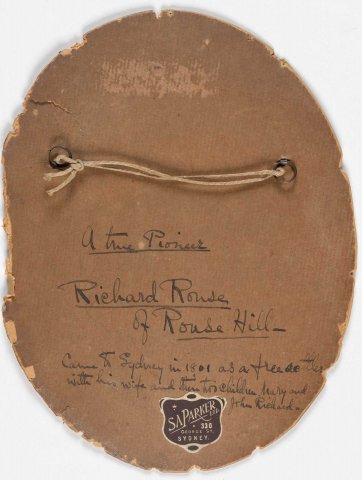 A true Pioneer
Richard Rouse
of Rouse Hill
Came to Sydney in 1801 as a free settler
with his wife and their two children Mary and
John Richard.
S.A. PARKER LTD.
330
GEORGE ST.
SYDNEY.